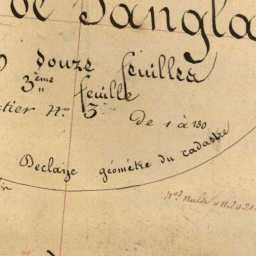 de Sangla
douze feuilles
3ème feuille
ctier N° 3
De 1 à 130
Declaize géomêtre du cadastre